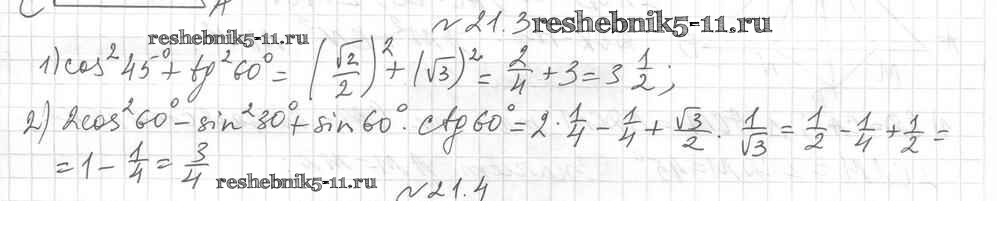 C A
№21.3 reshebnik5-11.ru
reshebnik5-11.ru
1) cos²45°+ tg²60°= (√2/2)²+(√3)²= 2/4 +3=3 1/2;
2) 2cos²60°-sin²30°+sin60°·ctg60°=2·1/4 - 1/4 + √3/2 · 1/√3 = 1/2 - 1/4 + 1/2 =
= 1 - 1/4 = 3/4
reshebnik5-11.ru
№21.4